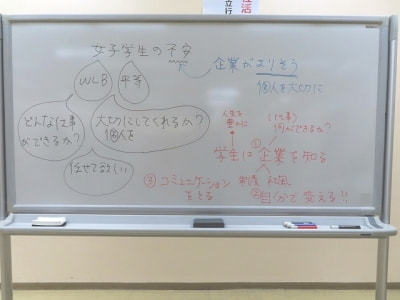 女子学生の不安
WLB
平等
企業がよりそう
個人を大切に
どんな仕事
ができるか?
大切にしてくれるか?
個人を
任せて欲しい
人生を
豊かに
(仕事)
何ができるか?
①
学生は企業を知る
③コミュニケーション
をとる
制度 社風
②自分で変える!!